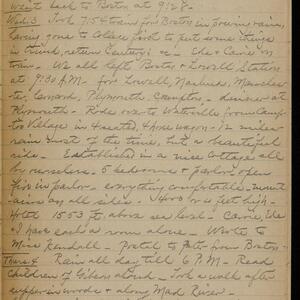 went back to Boston at 9:28-
Wed. 3. Took 7:54 train for Boston in pouring rain,
having gone to Colace first to put some things
in trunk, return Century + c - Ede & Carrie on
train. - We all left Boston & Lowell Station
at 9:30 A.M. for Lowell, Nashua, Manches-
ter, Concord, Plymouth, Campton, - dinner at
Plymouth - Rode over to Waterville from Camp-
ton Village in 4 seated, 4 horse wagon - 12 miles
rain most of the time, but a beautiful
ride. - Established in a nice cottage all
by ourselves. 5 bedrooms & parlor, open
fire in parlor - everything comfortable - mount-
ains on all sides. - 4000 or so feet high -
Hotel 1553 ft. above sea level. - Carrie, Ede
& I have each a room alone. - Wrote to
Miss Kendall. - Postal to from Boston -
Thurs. 4 Rain all day till 6 P.M. - Read
Children of Gibeon aloud. - Took a walk after
supper in woods & along Mad River. -